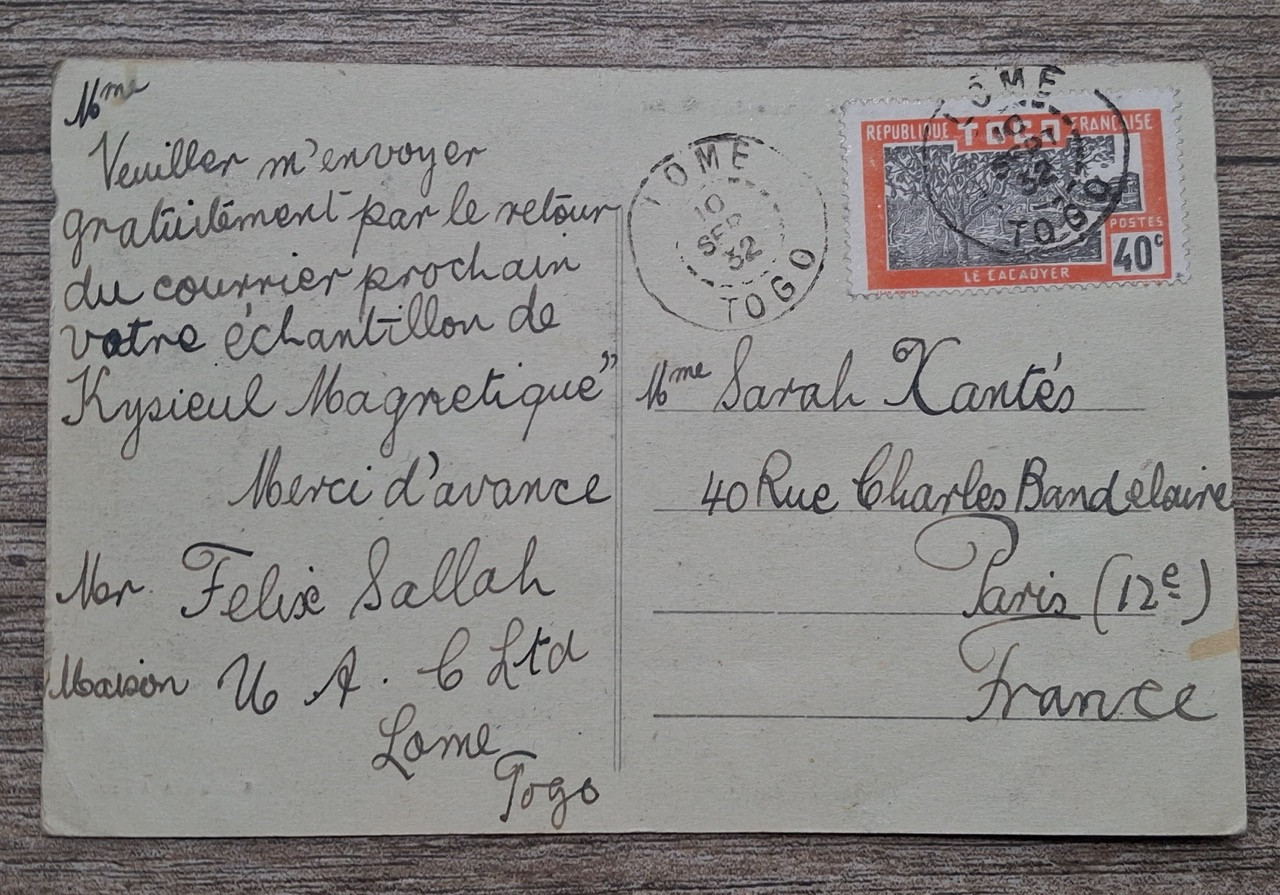 Mme
Veuiller m'envoyer
gratuitément par le retour
du courrier prochain
votre échantillon de
Kysieul Magnetique"
Merci d'avance
Mer. Felix Sallah
Maison U A. C Ltd
Lome
Togo
LOME
10
SEP
32
TOGO
LOME
10
SEPT
32
TOGO
REPUBLIQUE TOGO FRANÇAISE
POSTES
40c
LE CACAOYER
Mme Sarah Xantés
40 Rue Charles Bandelaire
Paris (12e)
France